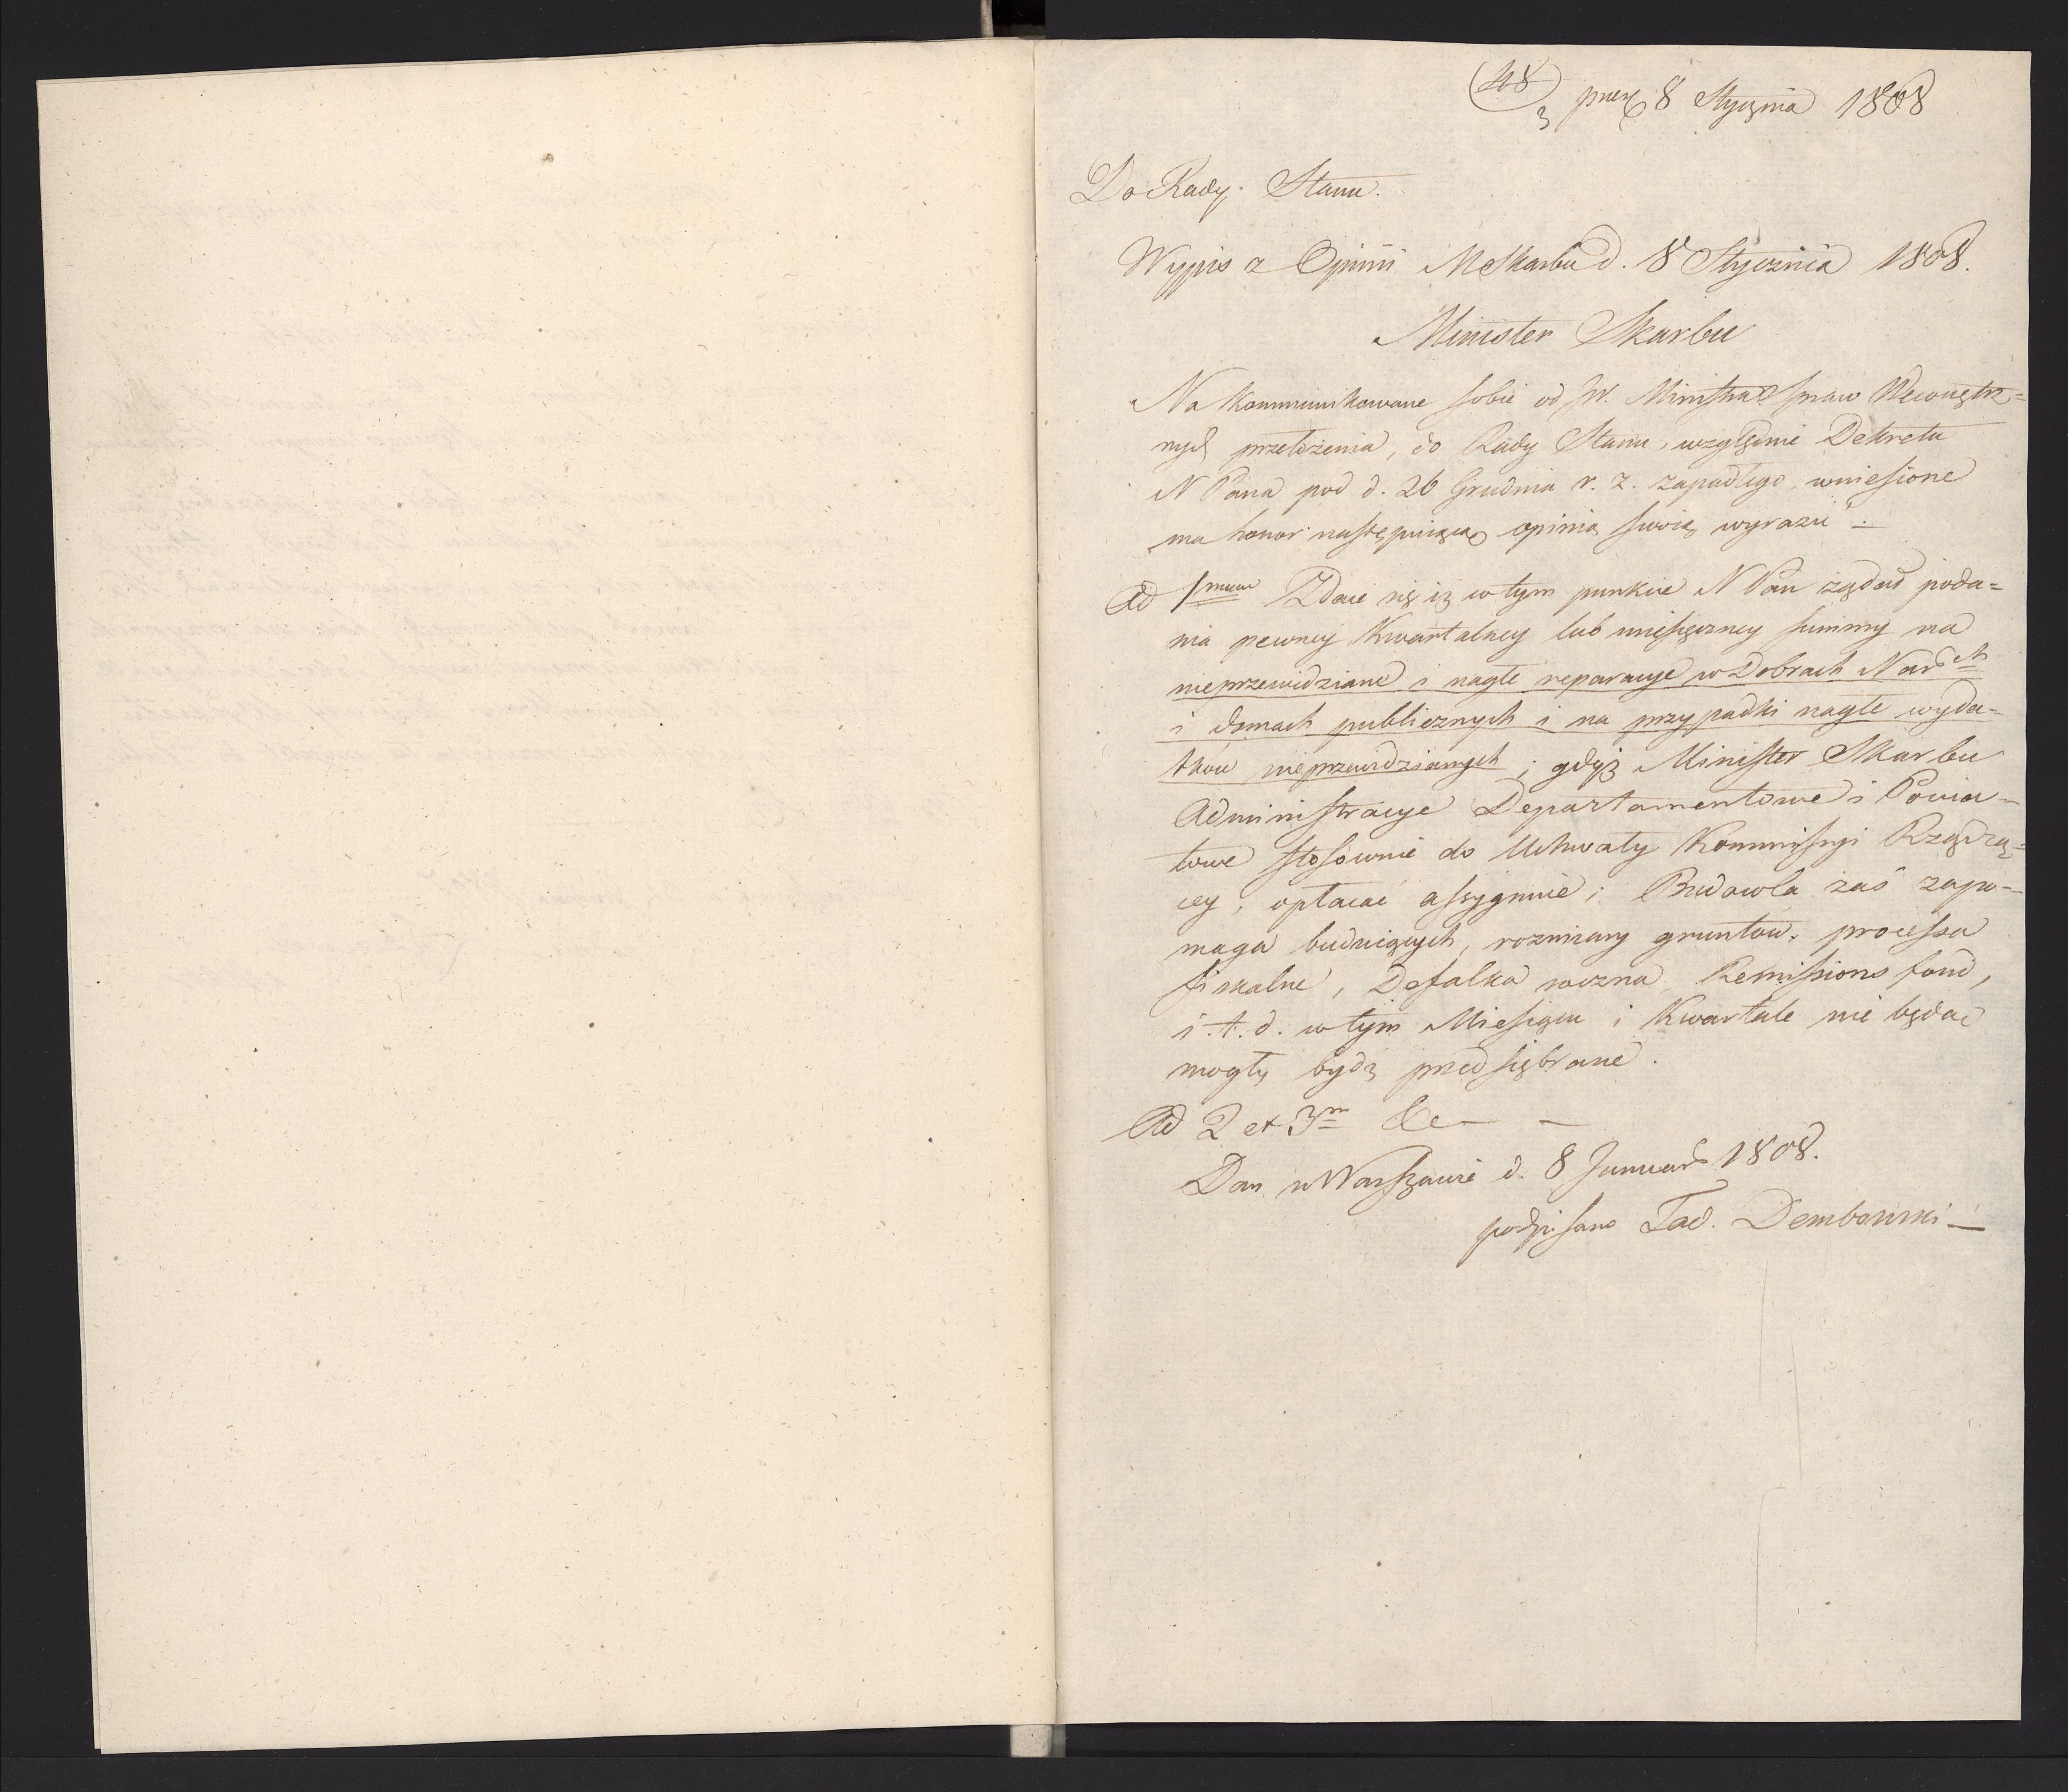 48
3 prez 8 Stycznia 1808
Do Rady Stanu.
Wypis z Opinii M Skarbu d. 8 Stycznia 1808.
Minister Skarbu
Na kommunikowane sobie od JW. Ministra Spraw Wewnętrz=
nych przełożenia, do Rady Stanu, względnie Dekretu
N Pana pod d. 26 Grudnia r. z. zapadłego, wniesione
ma honor następuiącą opinią swoią wyrazić :
Ad 1mum Zdaie się iż w tym punkcie N Pan żądał poda=
nia pewney Kwartalney lub miesięczney summy na
nieprzewidziane i nagłe reparacye w Dobrach Nardch
i domach publicznych i na przypadki nagłe wyda=
tków nieprzewidzianych ; gdyż Minister Skarbu
Administracye Departamentowe i Powia=
towe stosownie do Uchwały Kommissyi Rządzą=
cey, opłacać assygnuie ; Budowla zaś zapo=
maga buduiących, rozmiary gruntów, processa
fiskalne, Defalka roczna Remissions fond,
i. t. d. w tym Miesiącu i Kwartale nie będac
mogły bydź przedsiębrane.
Ad 2 et 3m &c — —
Dan w Warszawie d. 8 Januar 1808.
podpisano Tad. Dembowski —